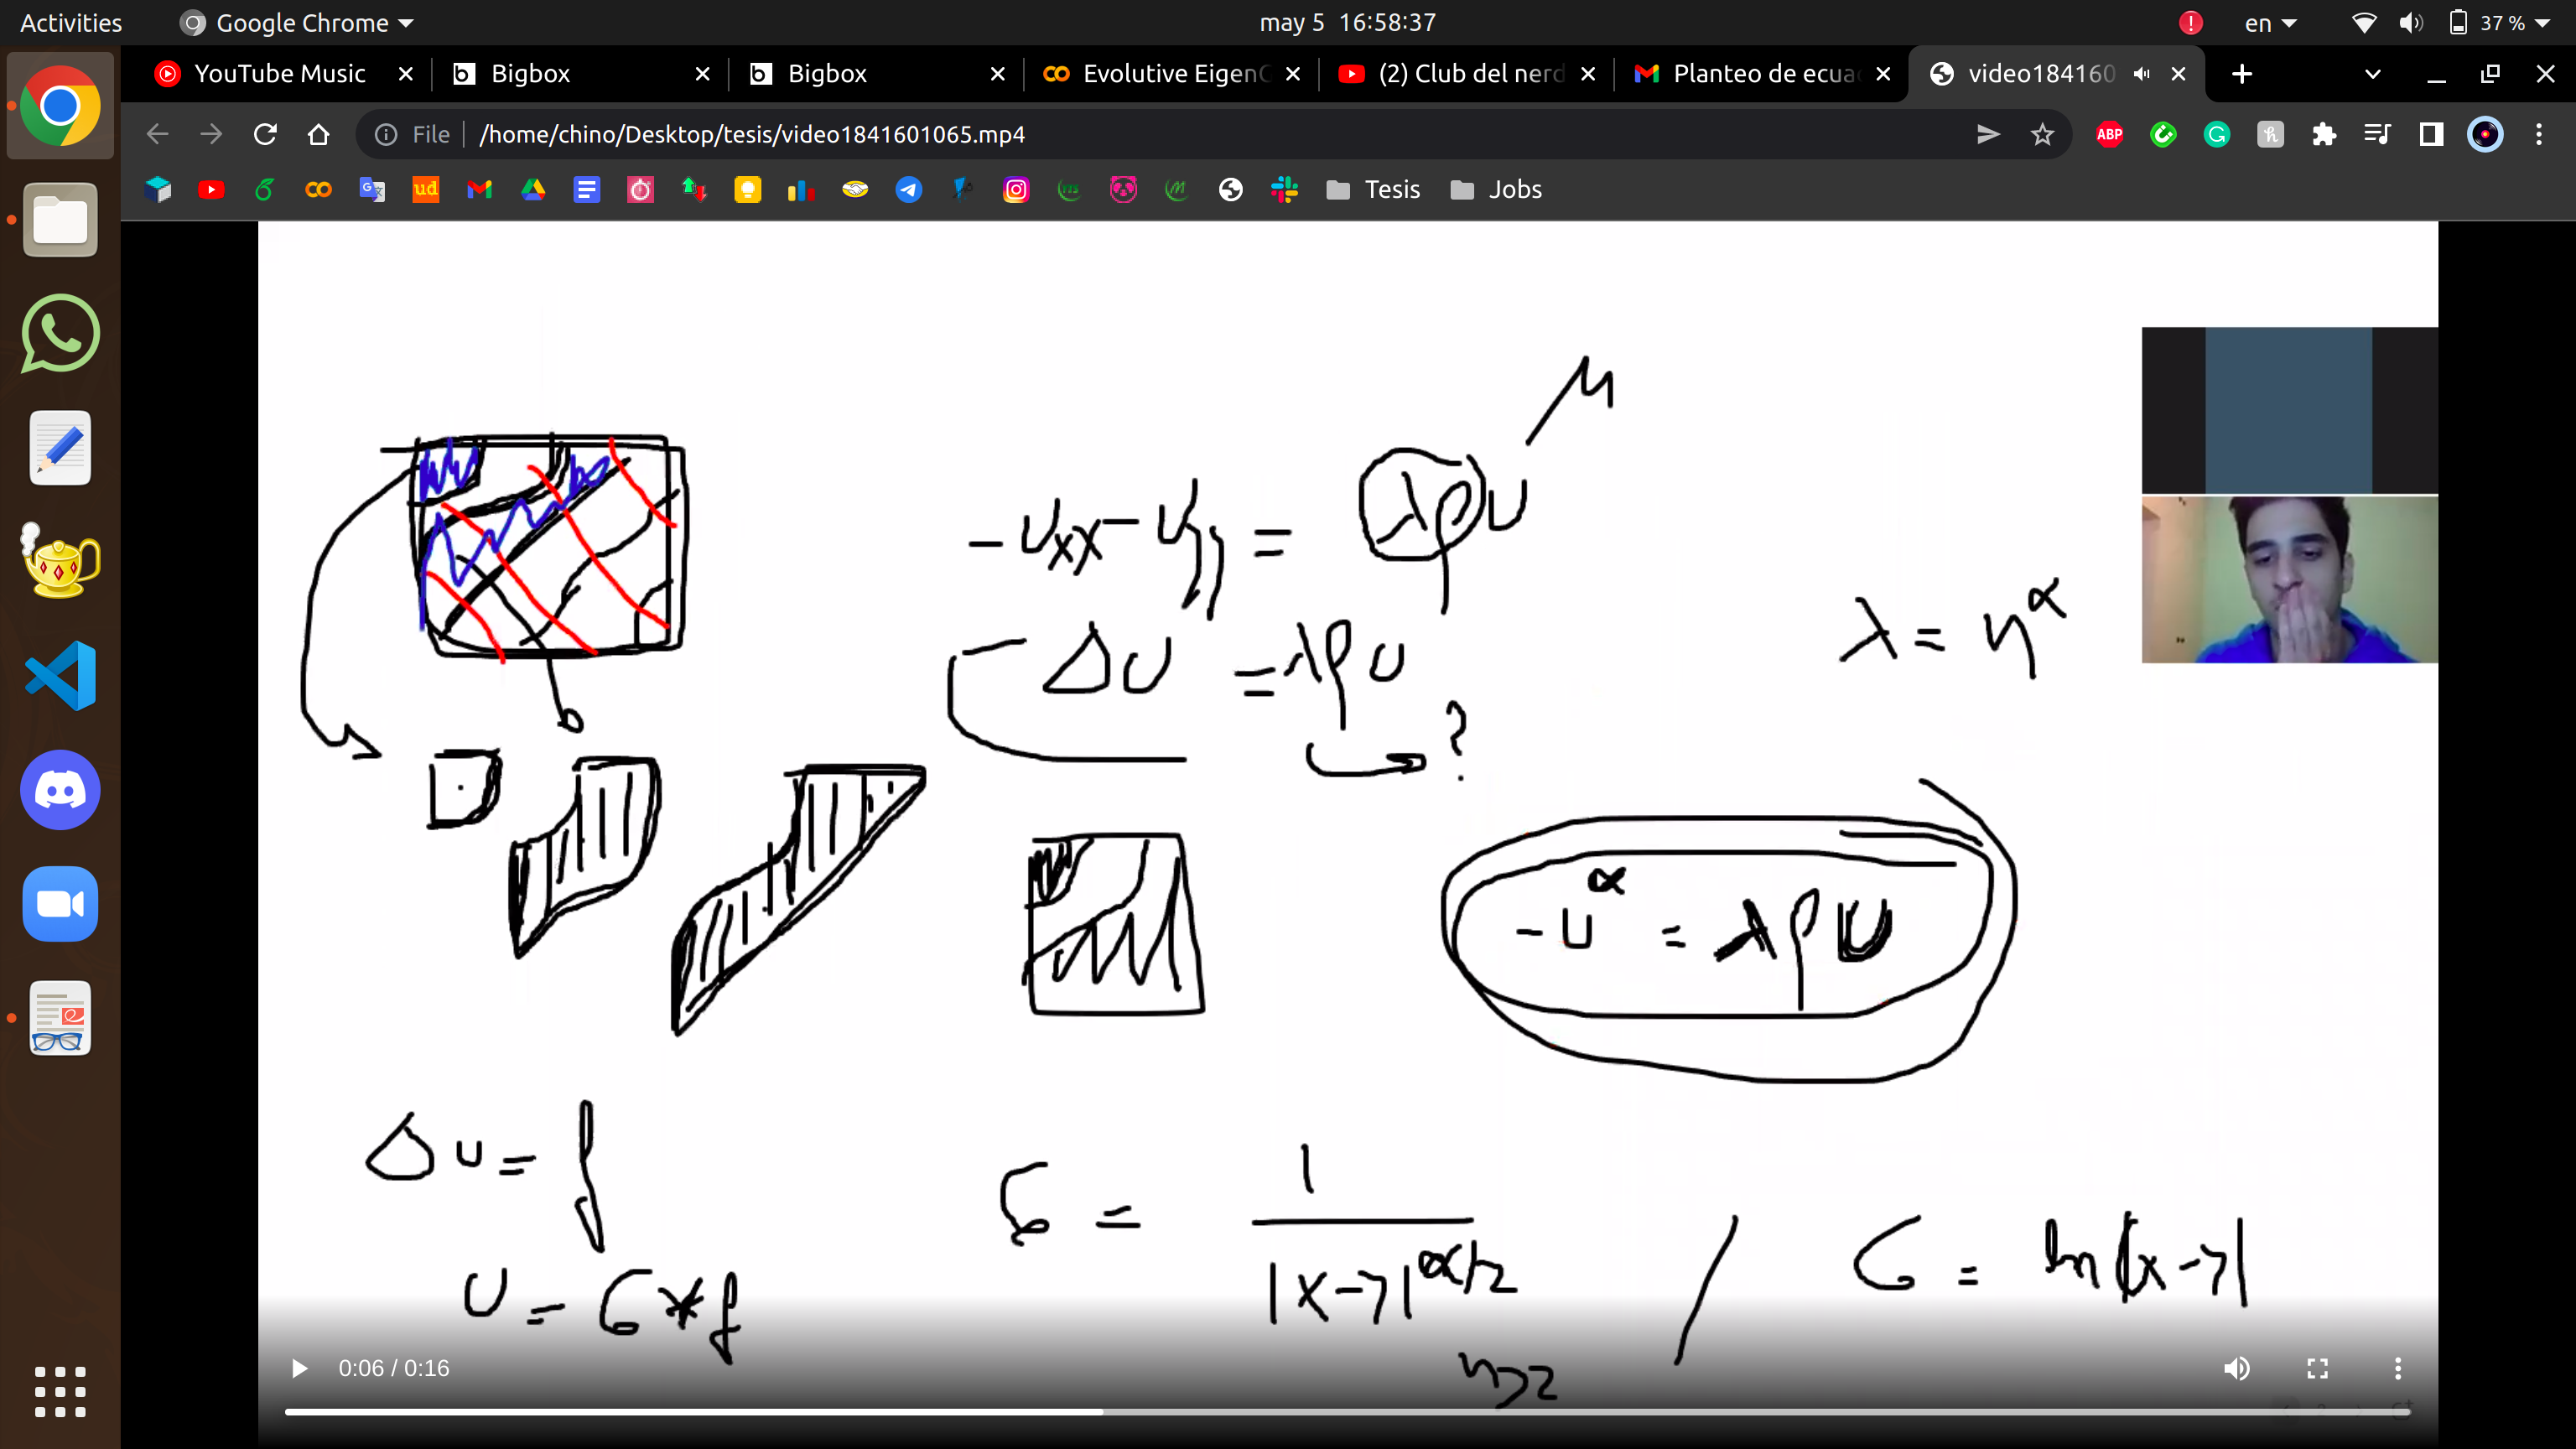 Activities Google Chrome may 5 16:58:37 en 37 %
YouTube Music Bigbox Bigbox Evolutive EigenC (2) Club del nerd Planteo de ecua video184160
File /home/chino/Desktop/tesis/video1841601065.mp4
ABP
ud Tesis Jobs
μ
- Uxx - Uyy = λρU
ΔU = λρU
?
λ = η^α
- U^α = λρU
Δu = f
U = G * f
G = 1 / |x-y|^
n>2
/
G = ln|x-y|
0:06 / 0:16